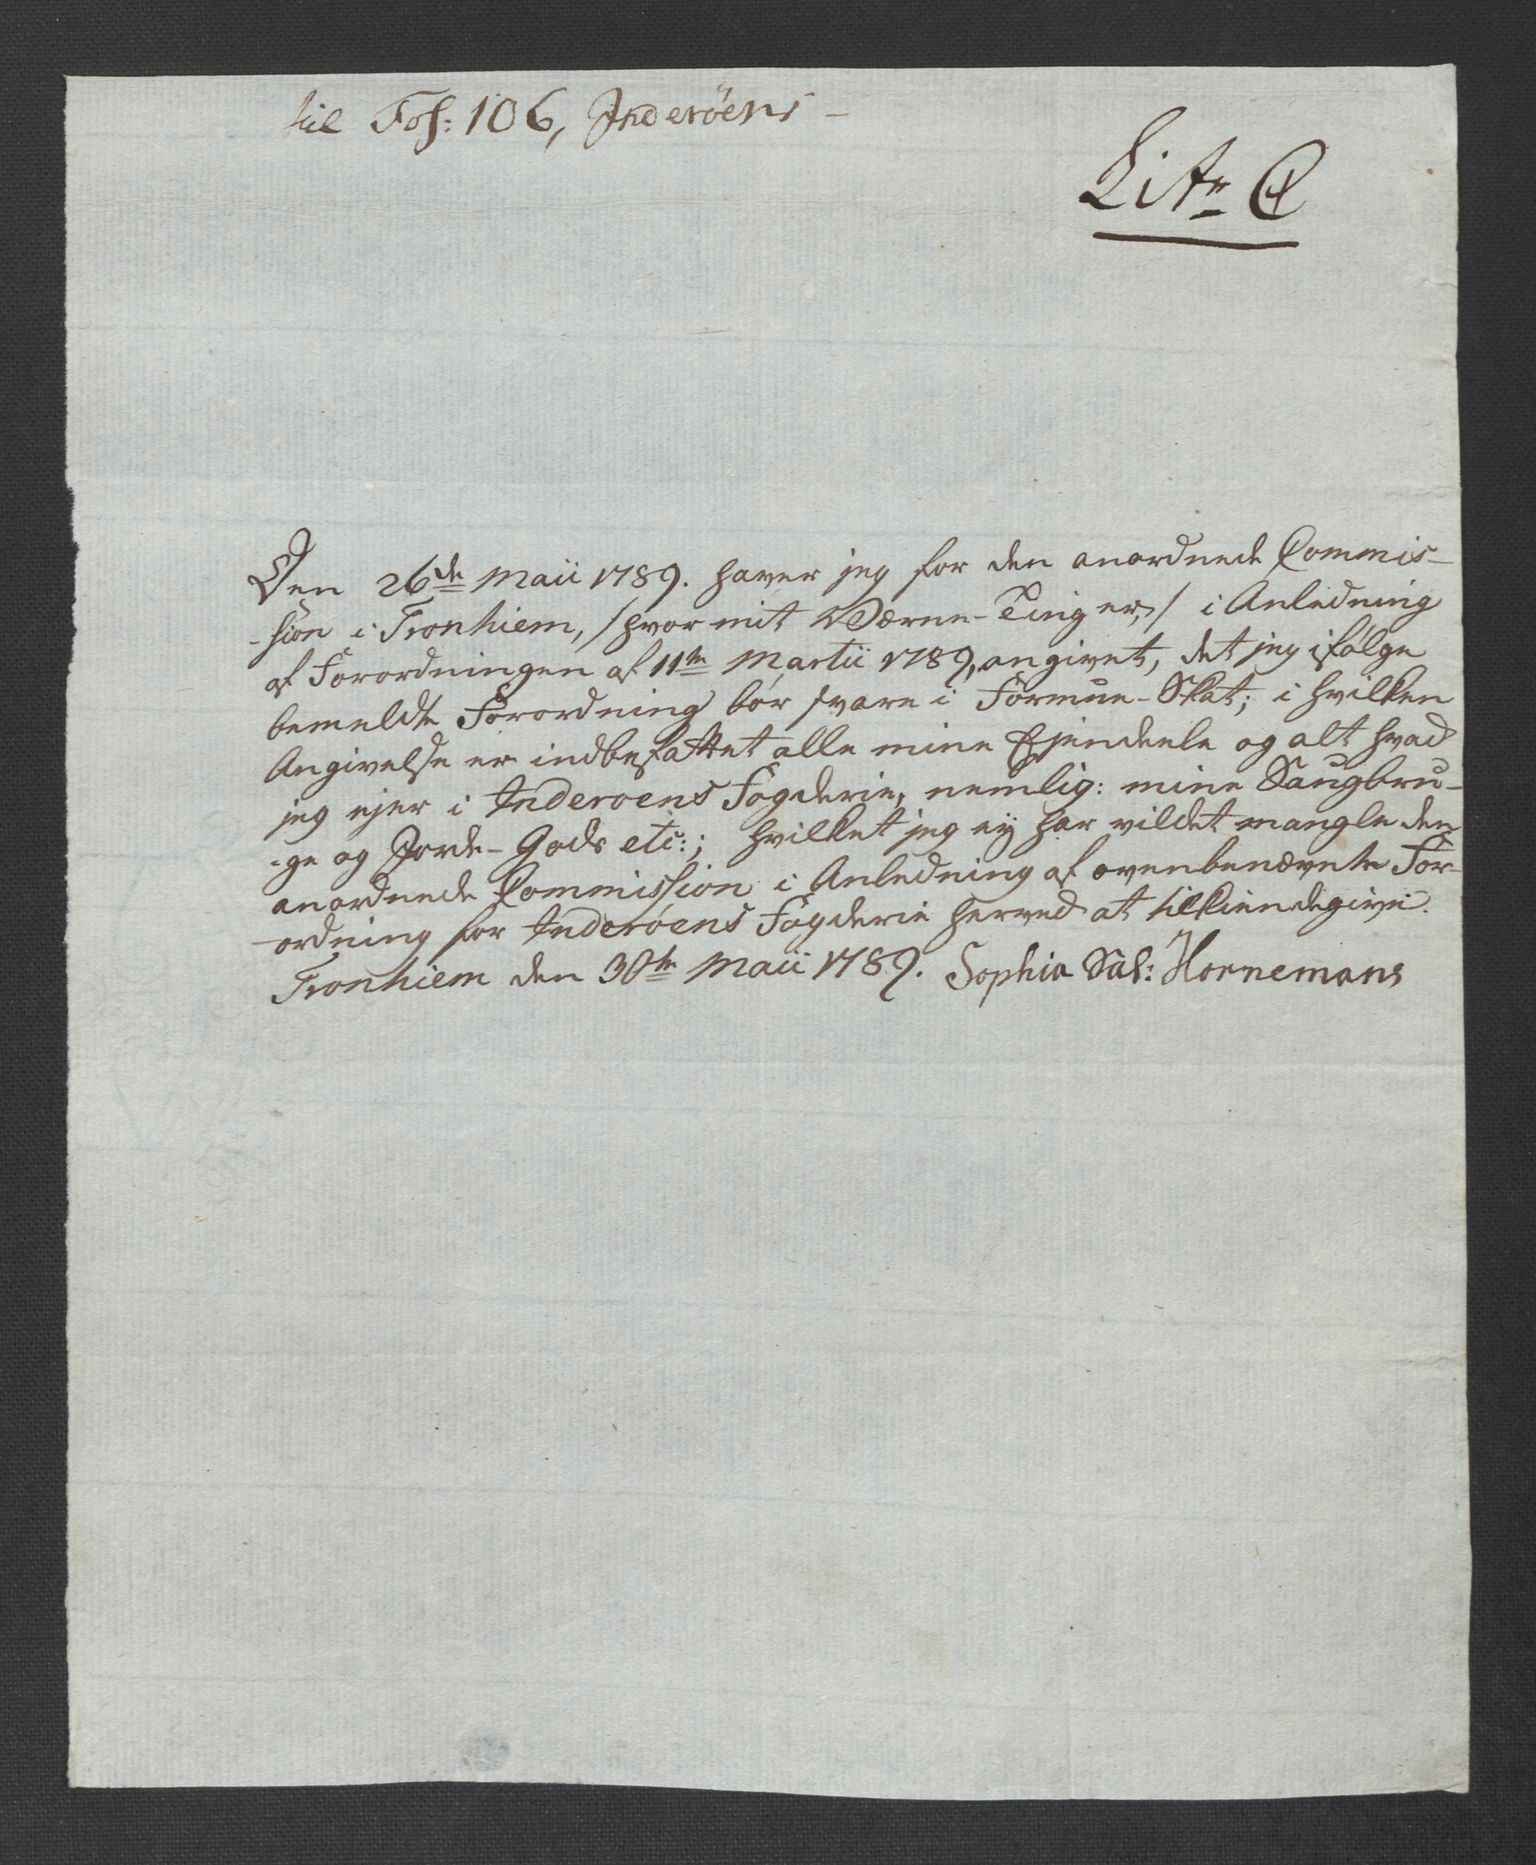 til Fol: 106, Inderöens –
Litr C
Den 26de Maii 1789. haver jeg for den anordnede Commis-
-sion i Tronhiem, /hvor mit Værne-Ting er,/ i Anledning
af Forordningen af 11te Martii 1789, angivet, det jeg ifølge
bemeldte Forordning bør svare i Formue-Skat; i hvilken
Angivelse er indbefattet alle mine Ejendeele og alt hvad
jeg ejer i Inderøens Fogderie, nemlig: mine Saugbru-
-ge og Jorde-Gods etc:; hvilket jeg ej har vildet mangle den
anordnede Commission i Anledning af ovenbenævnte For-
-ordning for Inderøens Fogderie herved at tilkiendegive.
Tronhiem den 30te Maii 1789. Sophia Sal: Hornemans